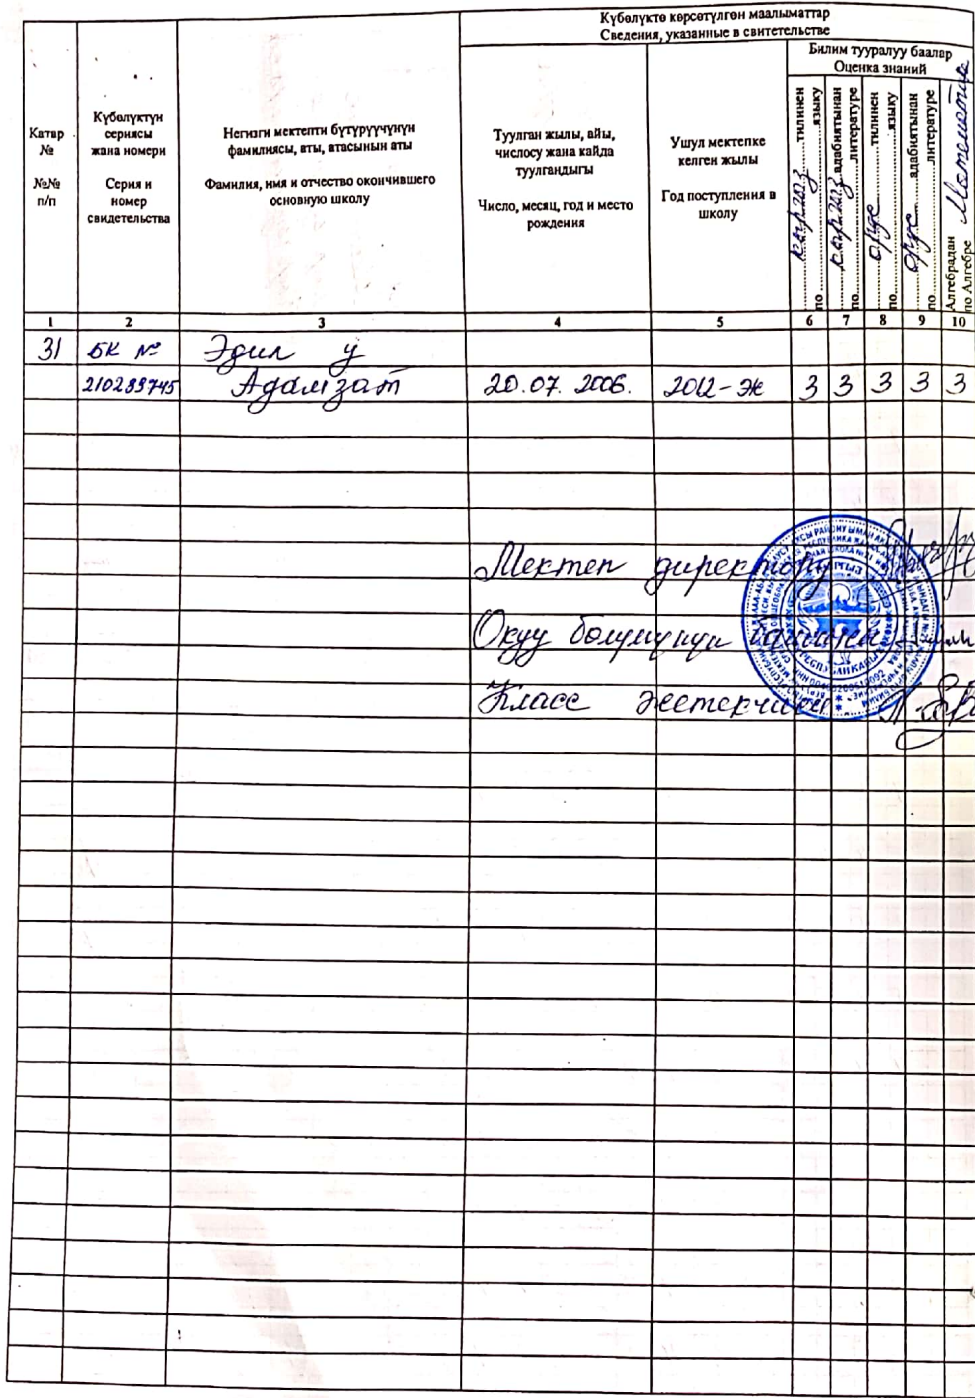 Күбөлүктө көрсөтүлгөн маалыматтар
Сведения, указанные в свитетельстве
Билим тууралуу баалар
Оценка знаний
Катар
№
№№
п/п
Күбөлүктүн
сериясы
жана номери
Серия и
номер
свидетельства
Негизги мектепти бүтүрүүчүнүн
фамилиясы, аты, атасынын аты
Фамилия, имя и отчество окончившего
основную школу
Туулган жылы, айы,
числосу жана кайда
туулгандыгы
Число, месяц, год и место
рождения
Ушул мектепке
келген жылы
Год поступления в
школу
кыргыз тилинен
по языку
кыргыз адабиятынан
по литературе
орус тилинен
по языку
орус адабиятынан
по литературе
Алгебрадан
по Алгебре
Математика
1 2 3 4 5 6 7 8 9 10
31 БК № Эдил у
210289745 Адамзат 20.07.2006. 2012-ж 3 3 3 3 3
Мектеп директору
Окуу бөлүмүнүн
Класс жетекчиси